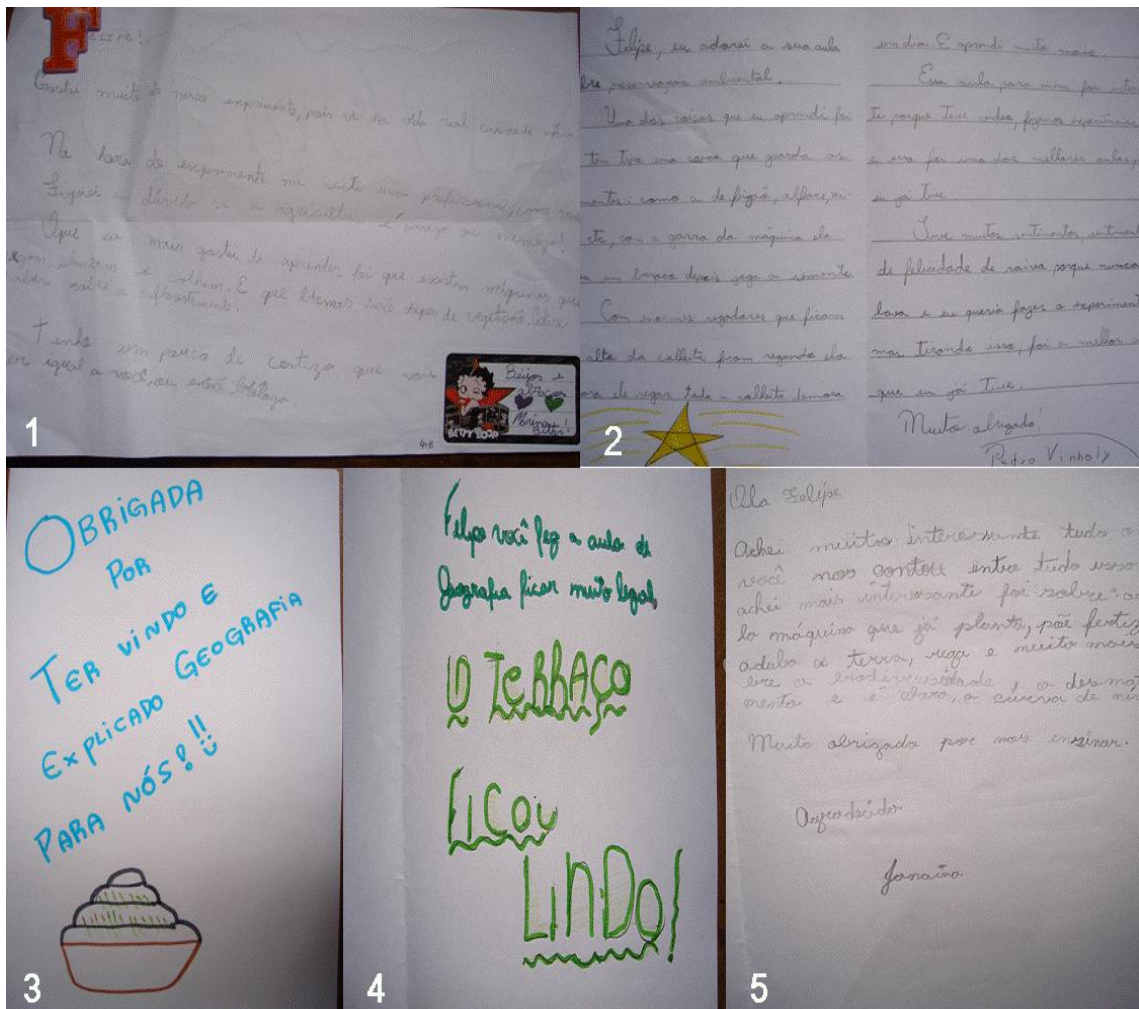 F elipe!
Gostei muito do nosso experimento, pois vi na vida real curvas de
Na hora do experimento me senti uma profissional, como você
Fiquei em dúvida se a agricultura é amiga ou inimiga!
Oque eu mais gostei de aprender, foi que existem máquinas que
plantam e colhem. E que biomas são tipos de vegetação.
saber sobre o reflorestamento.
Tenho um pouco de certeza que vou
ser igual a você, ou então bióloga
Beijos e
abraços
Marina
BETTY BOOP
4ºB
1
Felipe, eu adorei a sua aula
bre preservação ambiental.
Uma das coisas que eu aprendi foi
tem tipo uma caixa que guarda as
mentes: como a de feijão, alface, mi-
etc, com a garra da máquina ela
um buraco depois joga a semente
Com enormes regadores que ficam
alto da colheita ficam regando ela
ora de regar toda a colheita demora
um dia. E aprendi muito mais.
Essa aula para mim foi inter
te porque tive ideia, fizemos experiências
e essa foi uma das melhores aulas
eu já tive.
Tive muitos sentimentos, sentiment
de felicidade de raiva porque nunca
e eu queria fazer o experimen
mas tirando isso, foi a melhor a
que eu já tive.
Muito obrigado!
Pedro Vinholy
2
OBRIGADA
POR
TER VINDO E
EXPLICADO GEOGRAFIA
PARA NÓS!!!
3
Felipe você fez a aula de
Geografia ficar muito legal,
O TERRAÇO
FICOU
LINDO!
4
Ola Felipe
Achei muito interessante tudo o
você nos contou entre tudo isso
achei mais interessante foi sobre: a
la máquina que já planta, põe fertiz
aduba a terra, rega e muito mais
bre a biodiversidade, o desmat
mento e é claro, a curva de ní
Muito obrigado por nos ensinar.
Agradecido
Janaína
5